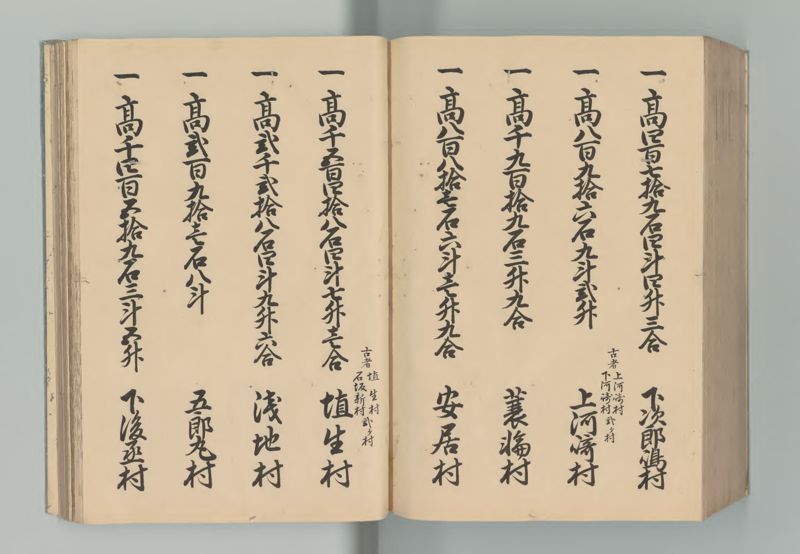 一 高四百七拾九石四斗四升三合 下次郎嶋村
一 高八百九拾六石九斗弐升 上河崎村
古者 上河崎村 下河崎村 弐ヶ村
一 高千九百拾九石三升九合 蓑輪村
一 高八百八拾七石六斗壱升九合 安居村
一 高千五百四拾八石四斗七升壱合 埴生村
古者 埴生村 石坂新村 弐ヶ村
一 高弐千弐拾八石四斗九升六合 浅地村
一 高弐百九拾壱石八斗 五郎丸村
一 高千四百五拾九石三斗五升 下後亟村